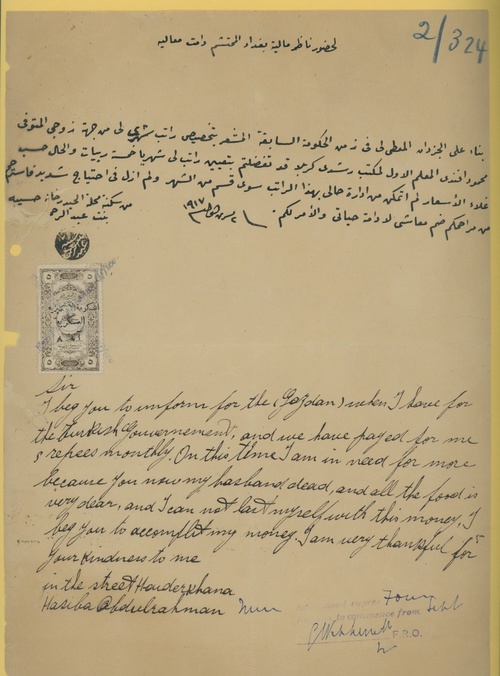 2/324
لحضور ناظر مالية بغداد المحتشم دامت معاليه
بناء على الجزدان المعطى لي في زمن الحكومة السابقة المشعر بتخصيص راتب شهري لي من جهة زوجي المتوفى
محمود افندي المعلم الاول لمكتب قد تفضلتم بتعيين راتب لي شهريا خمسة ربيات والحال حسب
غلاء الأسعار لم اتمكن من ادارة حالي بهذا الراتب سوى قسم من الشهر ولم ازل في احتياج شديد
من مراحمكم ضم معاشي لادامة حياتي والأمر لكم
١٩١٧
من سكنة محلة الحيدرخانة حسيبه
بنت عبد الرحمن
Sir
I beg you to uniform for the (Gozdan) when I have for
the Turkish Gouvernement, and we have payed for me
5 repees monthly. On this time I am in need for more
because you now my hasband dead, and all the food is
very dear, and I can not last myself with this money. I
beg you to accomplit my money. I am very thankful for
your kindness to me
in the street Haiderkhana
Hasiba Abdulrahman
Four
to commence from Sebt
F.R.O.